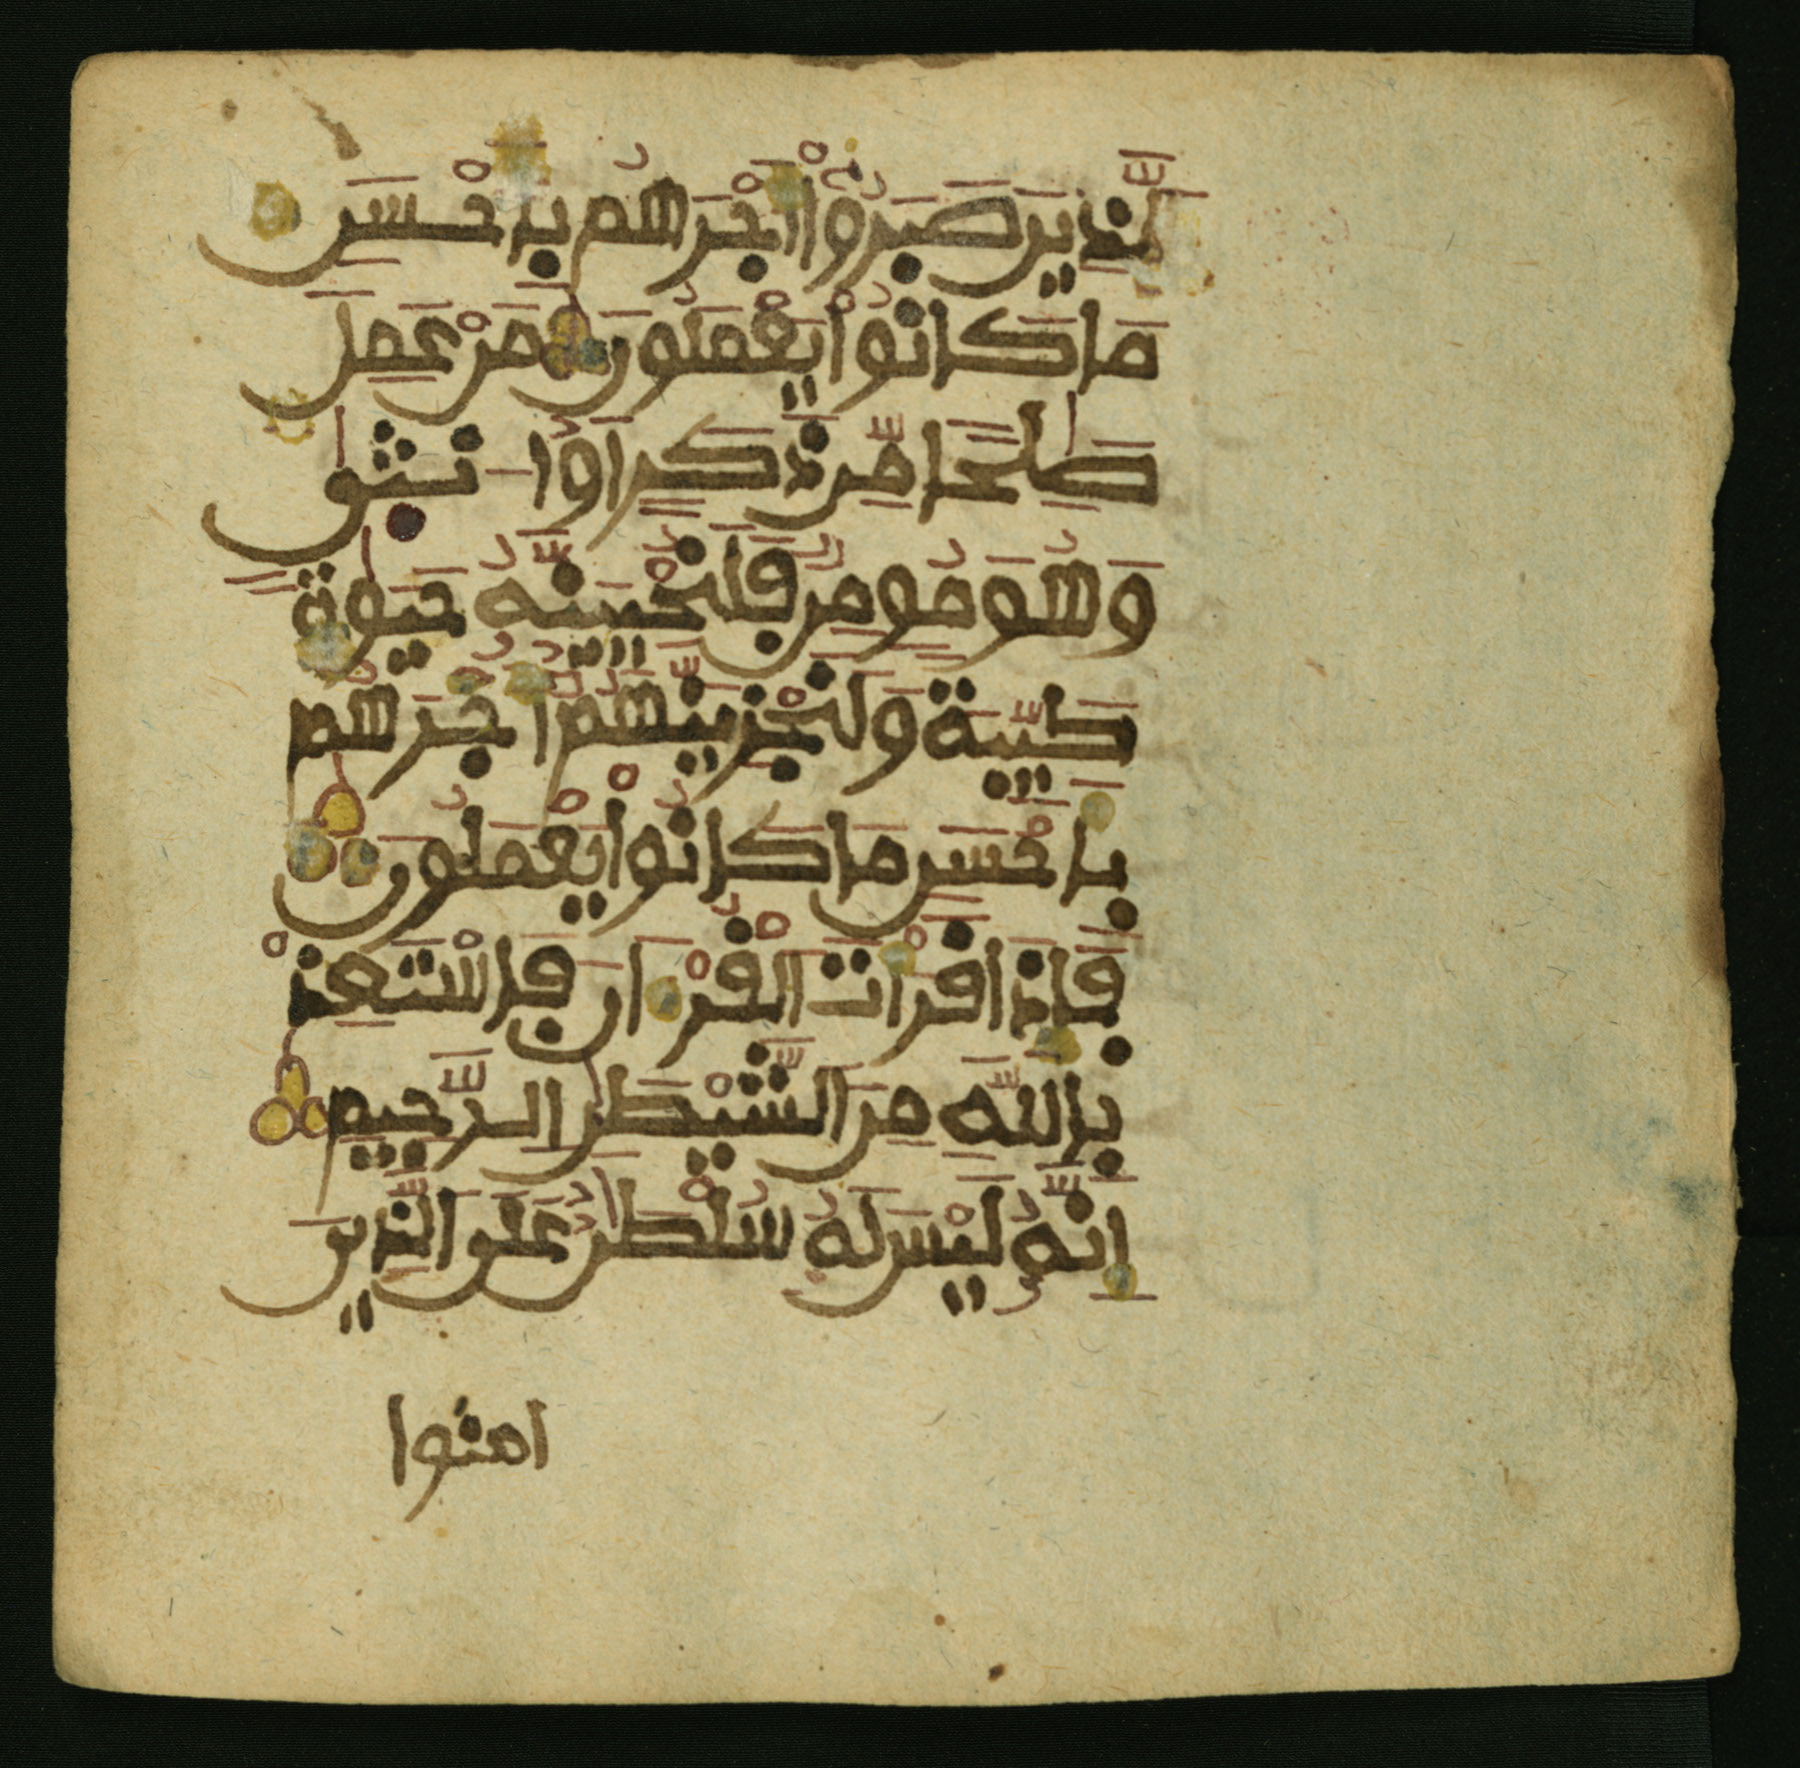 الَّذِينَ صَبَرُوٓاْ أَجْرَهُم بِأَحْسَنِ
مَا كَانُواْ يَعْمَلُونَ مَنْ عَمِلَ
صَٰلِحًا مِّن ذَكَرٍ اَوُ ا۟نثٰى
وَهُوَ مُومِنٌ فَلَنُحْيِيَنَّهُ حَيَوٰةً
طَيِّبَةً وَلَنَجْزِيَنَّهُمُ أَجْرَهُم
بِأَحْسَنِ مَا كَانُواْ يَعْمَلُونَ
فَإِذَا قَرَأْتَ الْقُرْءَانَ فَاسْتَعِذْ
بِاللَّهِ مِنَ الشَّيْطَٰنِ الرَّجِيمِ
إِنَّهُ لَيْسَ لَهُ سُلْطَٰنٌ عَلَى الَّذِينَ
امنوا